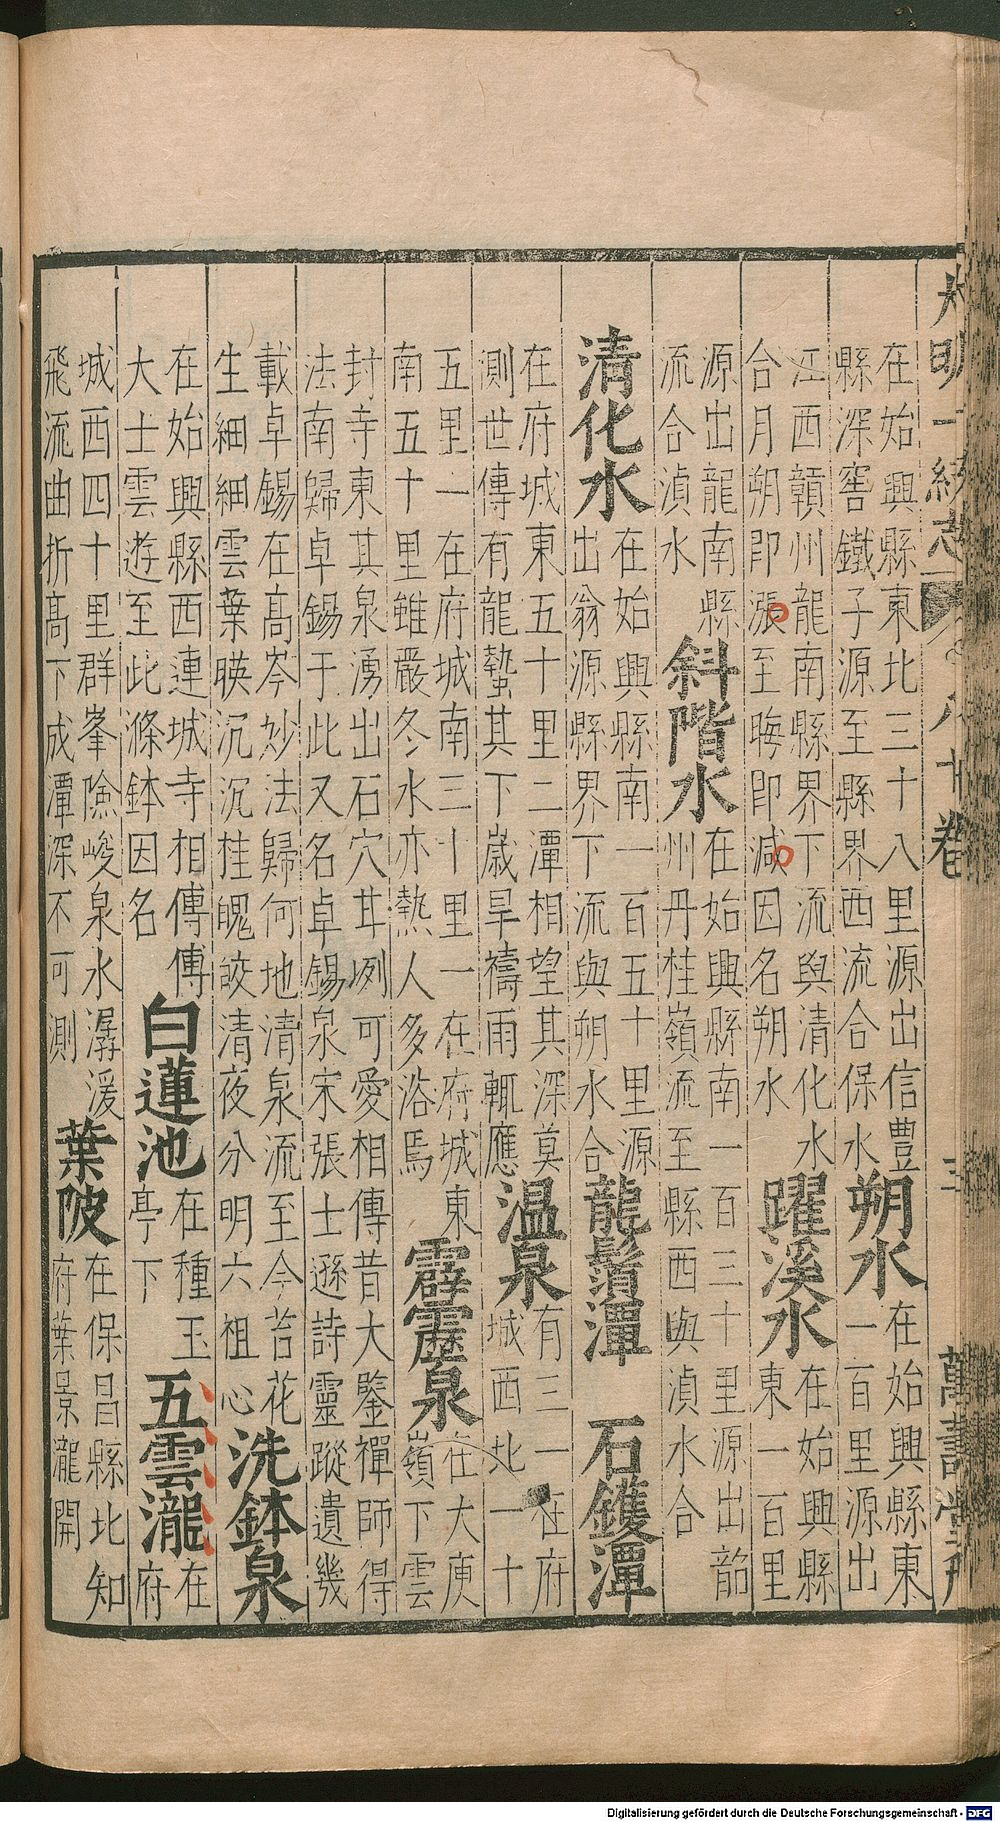 大明一統志 八十卷 三 萬壽堂刊
在始興縣東北三十八里源出信豐
縣深窖鐵子源至縣界西流合保水
朔水
在始興縣東
一百里源出
江西贛州龍南縣界下流與清化水
合月朔即漲至晦即減因名朔水
躍溪水
在始興縣
東一百里
源出龍南縣
流合湞水
斜階水
在始興縣南一百三十里源出韶
州丹桂嶺流至縣西與湞水合
清化水
在始興縣南一百五十里源
出翁源縣界下流與朔水合
龍鬚潭
石鑊潭
在府城東五十里二潭相望其深莫
測世傳有龍蟄其下歲旱禱雨輒應
温泉
有三一在府
城西北一十
五里一在府城南三十里一在府城東
南五十里雖嚴冬水亦熱人多浴焉
霹靂泉
在大庾
嶺下雲
封寺東其泉湧出石穴甘冽可愛相傳昔大鑒禪師得
法南歸卓錫于此又名卓錫泉宋張士遜詩靈蹤遺幾
載卓錫在高岑妙法歸何地清泉流至今苔花
生細細雲葉暎沉沉桂魄皎清夜分明六祖心
洗鉢泉
在始興縣西連城寺相傳傳
大士雲遊至此滌鉢因名
白蓮池
在種玉
亭下
五雲瀧
在
府
城西四十里群峯險峻泉水潺湲
飛流曲折高下成潭深不可測
葉陂
在保昌縣北知
府葉景瀧開
Digitalisierung gefördert durch die Deutsche Forschungsgemeinschaft - DFG